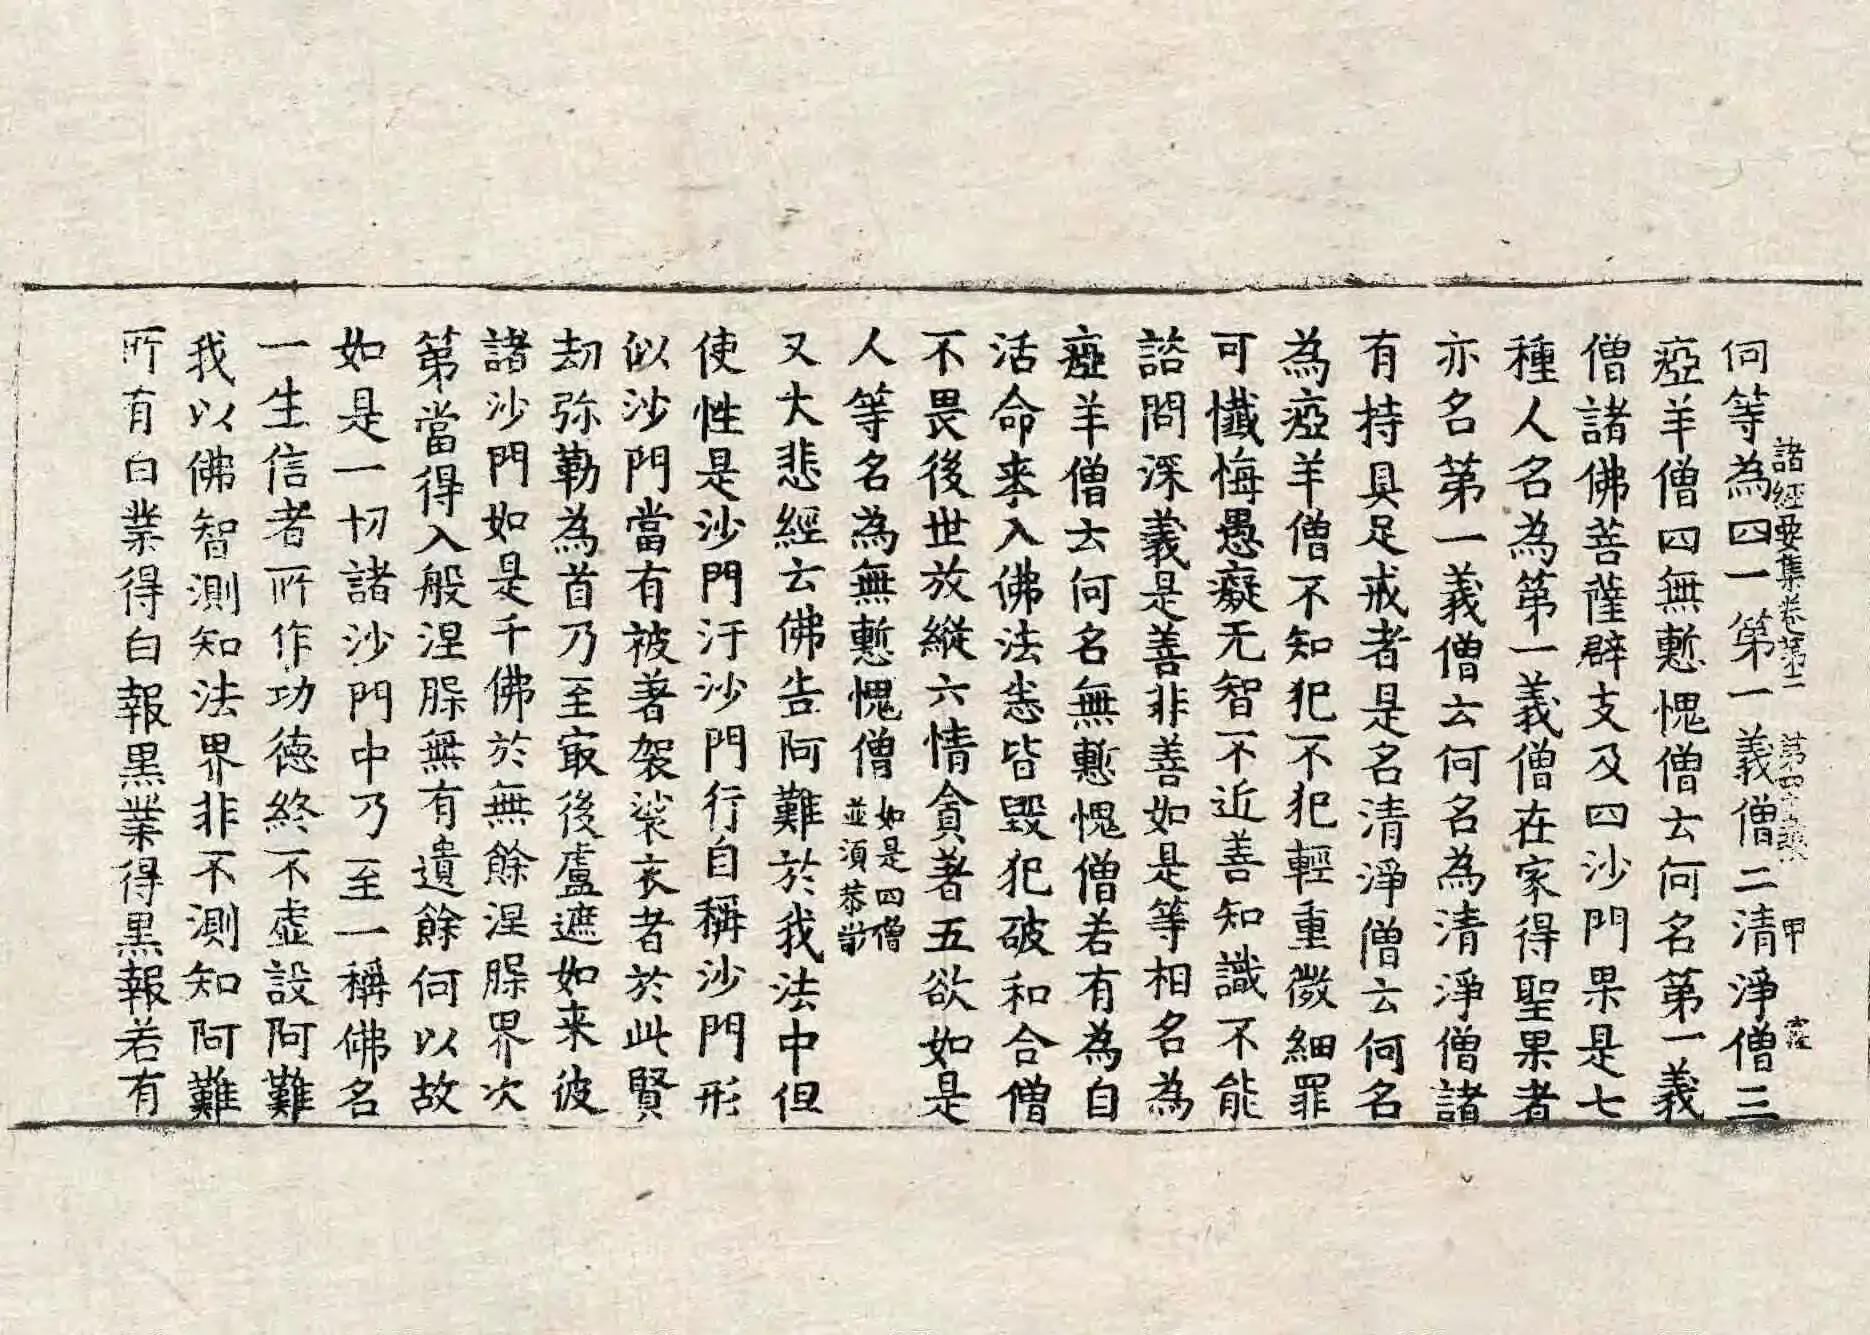 何等為四一第一義僧二清淨僧三
諸經要集卷第二 第四十五張 甲
瘂羊僧四無慙愧僧云何名第一義
僧諸佛菩薩辟支及四沙門果是七
種人名為第一義僧在家得聖果者
亦名第一義僧云何名為清淨僧諸
有持具足戒者是名清淨僧云何名
為瘂羊僧不知犯不犯輕重微細罪
可懺悔愚癡无智不近善知識不能
諮問深義是善非善如是等相名為
瘂羊僧云何名無慙愧僧若有為自
活命來入佛法悉皆毀犯破和合僧
不畏後世放縱六情貪著五欲如是
人等名為無慙愧僧如是四僧並須恭敬
又大悲經云佛告阿難於我法中但
使性是沙門汙沙門行自稱沙門形
似沙門當有被著袈裟衣者於此賢
劫弥勒為首乃至寂後盧遮如来彼
諸沙門如是千佛於無餘涅槃界次
第當得入般涅槃無有遺餘何以故
如是一切諸沙門中乃至一稱佛名
一生信者所作功德終不虛設阿難
我以佛智測知法界非不測知阿難
所有白業得白報黒業得黒報若有